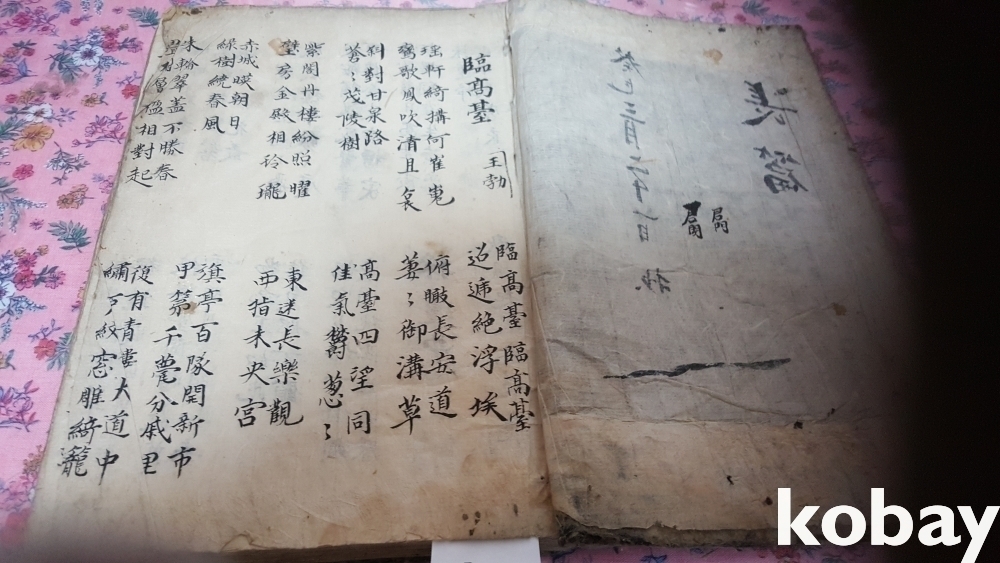 長篇
癸巳三月二十一日 抄
臨高臺
王勃
臨高臺臨高臺
迢遞絶浮埃
瑤軒綺搆何崔嵬
鸞歌鳳吹清且哀
俯瞰長安道
萋〻御溝草
斜對甘泉路
蒼〻茂陵樹
高臺四望同
佳氣鬱葱〻
紫閣丹樓紛照曜
璧房金殿相玲瓏
東迷長樂觀
西指未央宮
赤城暎朝日
綠樹繞春風
旗亭百隊開新市
甲第千甍分戚里
朱輪翠盖不勝春
疊榭層楹相對起
復有青樓大道中
繡戶紋窓雕綺籠
kobay